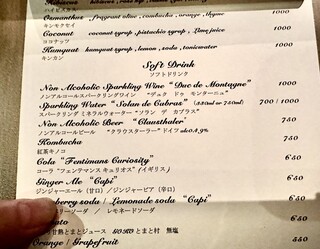 Hibiscus
ハイビスカス 1000
Osmanthus fragrant olive, kombucha, orange, thyme 1000
キンモクセイ
Coconut coconut syrup, pistachio syrup, lime juice 1000
ココナッツ
Kumquat kumquat syrup, lemon, soda, tonicwater 1000
キンカン
Soft Drink
ソフトドリンク
Non Alcoholic Sparkling Wine "Duc de Montagne" 1000
ノンアルコールスパークリングワイン "デュク ドゥ モンターニュ"
Sparkling Water "Solan de Cabras" (330ml or 750ml) 700 / 1000
スパークリングミネラルウォーター "ソラン デ カブラス"
Non Alcoholic Beer "Clausthaler" 750
ノンアルコールビール "クラウスターラー" ドイツ alc0.49%
Kombucha 750
紅茶キノコ
Cola "Fentimans Curiosity" 650
コーラ "フェンティマンス キュリオス" (イギリス)
Ginger Ale "Capi" 650
ジンジャーエール (甘口) /ジンジャービア (辛口)
soda / Lemonade soda "Capi" 650
ソーダ / レモネードソーダ
650
トマトジュース とまと村 無塩
Orange / Grapefruit 650